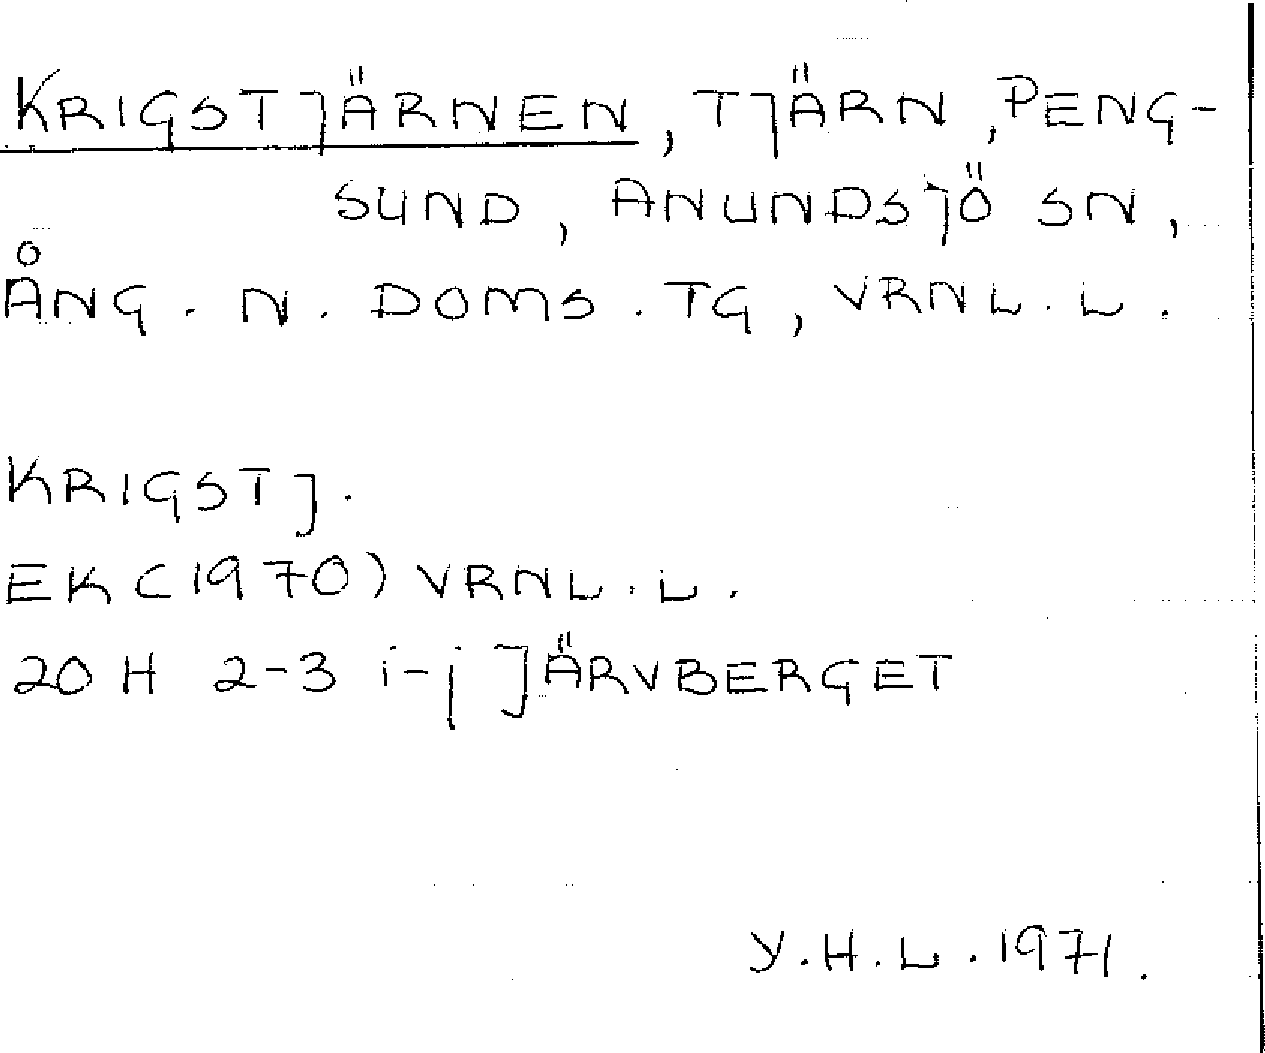 KRIGSTJÄRNEN, TJÄRN, PENG-
SUND, ANUNDSJÖ SN,
ÅNG. N. DOMS. TG, VRNL. L.
KRIGSTJ.
EK (1970) VRNL. L.
20 H 2-3 i-j JÄRVBERGET
Y.H.L. 1971.